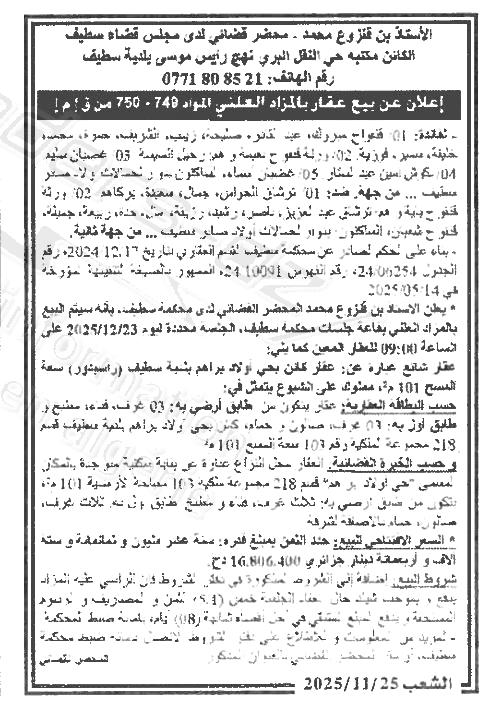 الأستاذ بن قنزوع محمد - محضر قضائي لدى مجلس قضاء سطيف
الكائن مكتبه حي النقل البري نهج رابيس موسى بلدية سطيف
رقم الهاتف: 0771 80 85 21
إعلان عن بيع عقار بالمزاد العلني المواد 749 - 750 من ق إ م إ
- لفائدة: 01/ قنواح مبروك، عبد القادر، صليحة، زينب، الشريف، حمزة، محمد،
خليفة، سمير، فوزية. 02/ ورثة قنواح نعيمة و هم: رحيل السبيعة 03/ غضبان سعيد
04/ أمين عبد الستار 05/ غضبان الساكنون
سطيف ... من جهة، ضد: 01/ الحواس، جمال، سعيدة، 02/ ورثة
قنواح باية و هم: عبد العزيز، ناصر، رشيد، رزيقة، حدة، ربيعة، جميلة،
قنواح شعبان، الساكنون أولاد صابر سطيف ... من جهة ثانية.
- بناء على الحكم الصادر عن محكمة سطيف القسم العقاري بتاريخ 2024.12.17، رقم
الجدول 24/06254، رقم الفهرس 24/10091، الممهور بالصيغة التنفيذية المؤرخة
في 2025/05/14
* يعلن الأستاذ بن قنزوع محمد المحضر القضائي لدى محكمة سطيف، بأنه سيتم البيع
بالمزاد العلني بقاعة جلسات محكمة سطيف، الجلسة المحددة ليوم 2025/12/23 على
الساعة 09:00 للعقار المعين كما يلي:
عقار شائع عبارة عن: عقار كائن بحي أولاد براهم بلدية سطيف سعة
المسح 101 م²، مملوك على الشيوع يتمثل في:
حسب البطاقة العقارية: عقار يتكون من طابق أرضي به: 03 غرف، فناء، مطبخ و
طابق أول به: 03 غرف، صالون و حمام، كائن بحي أولاد براهم بلدية سطيف قسم
218 مجموعة ملكية رقم 103 سعة المسح 101 م²
و حسب الخبرة القضائية: العقار محل النزاع عبارة عن بناية سكنية متواجدة بالمكان
المسمى "حي أولاد براهم" قسم 218 مجموعة ملكية 103 مساحة الأرضية 101 م²،
تتكون من طابق أرضي به: ثلاث غرف، فناء و مطبخ، طابق أول به: ثلاث غرف،
صالون، حمام بالإضافة للشرفة
* السعر الافتتاحي للبيع: حدد الثمن بمبلغ قدره: ستة عشر مليون و ثمانمائة و ستة
آلاف و أربعمائة دينار جزائري 16.806.400 دج.
شروط البيع: إضافة إلى الشروط المذكورة في دفتر الشروط فإن الراسي عليه المزاد
يدفع بموجب شيك حال انعقاد الجلسة خمس (5/1) الثمن و المصاريف و الرسوم
المستحقة و يدفع المبلغ المتبقي في أجل أقصاه ثمانية (08) أيام بأمانة ضبط المحكمة.
- لمزيد من المعلومات و للاطلاع على دفتر الشروط الاتصال بأمانة ضبط محكمة
سطيف، أو المحضر القضائي بالعنوان المذكور المحضر القضائي
الشعب 2025/11/25